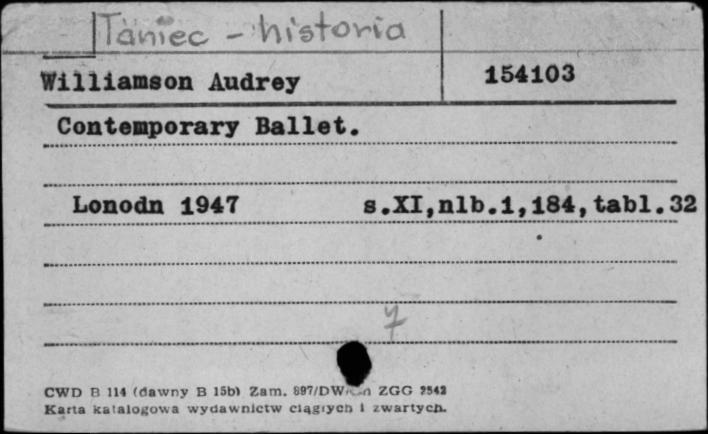 Taniec - historia
Williamson Audrey 154103
Contemporary Ballet.
Lonodn 1947 s.XI,nlb.1,184,tabl.32
7
CWD B 114 (dawny B 15b) Zam. 897/DW ZGG 2542
Karta katalogowa wydawnictw ciągłych i zwartych.